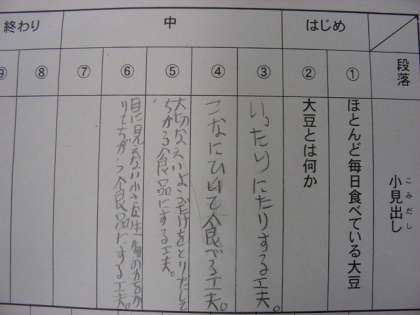 段落
小見出し
こみだし
はじめ
①
ほとんど毎日食べている大豆
②
大豆とは何か
中
③
いったりにたりする工夫。
④
こなにひいて食べる工夫。
⑤
大切なえいようだけをとりだして
ちがう食品にする工夫。
⑥
目に見えない小さな生物の力をか
りてちがう食品にする工夫。
⑦
終わり
⑧
⑨